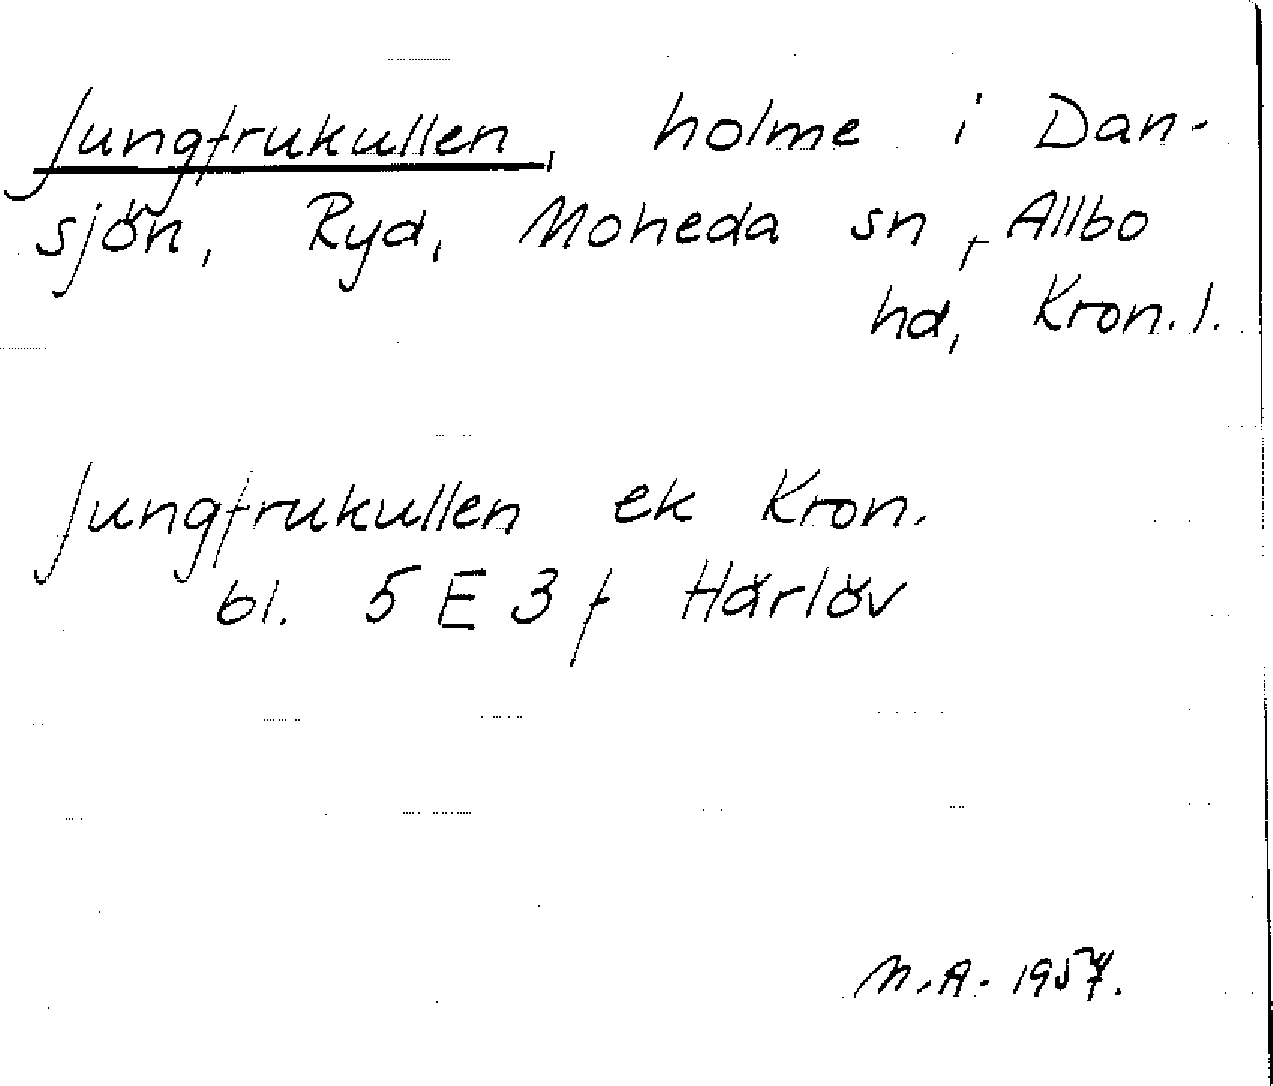 Jungfrukullen, holme i Dan-
sjön, Ryd, Moheda sn, Allbo
hd, Kron. l.
Jungfrukullen ek Kron.
bl. 5 E 3 f Härlöv
M.A. 1957.